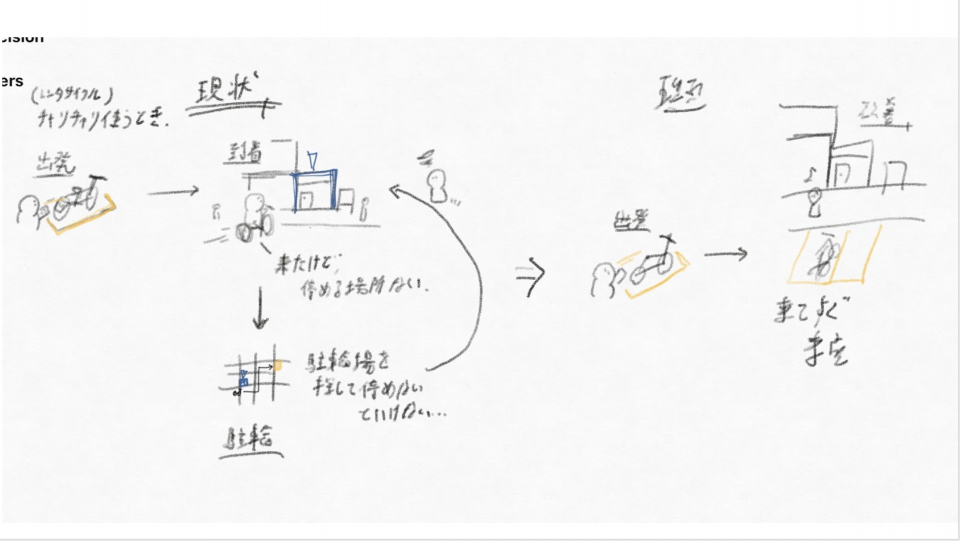 cision
ers
(レンタサイクル)
チャリチャリ使うとき.
現状
出発
到着
来たけど、
停める場所ない.
駐輪場を
探して停めない
といけない...
駐輪
理想
出発
到着
来てすぐ